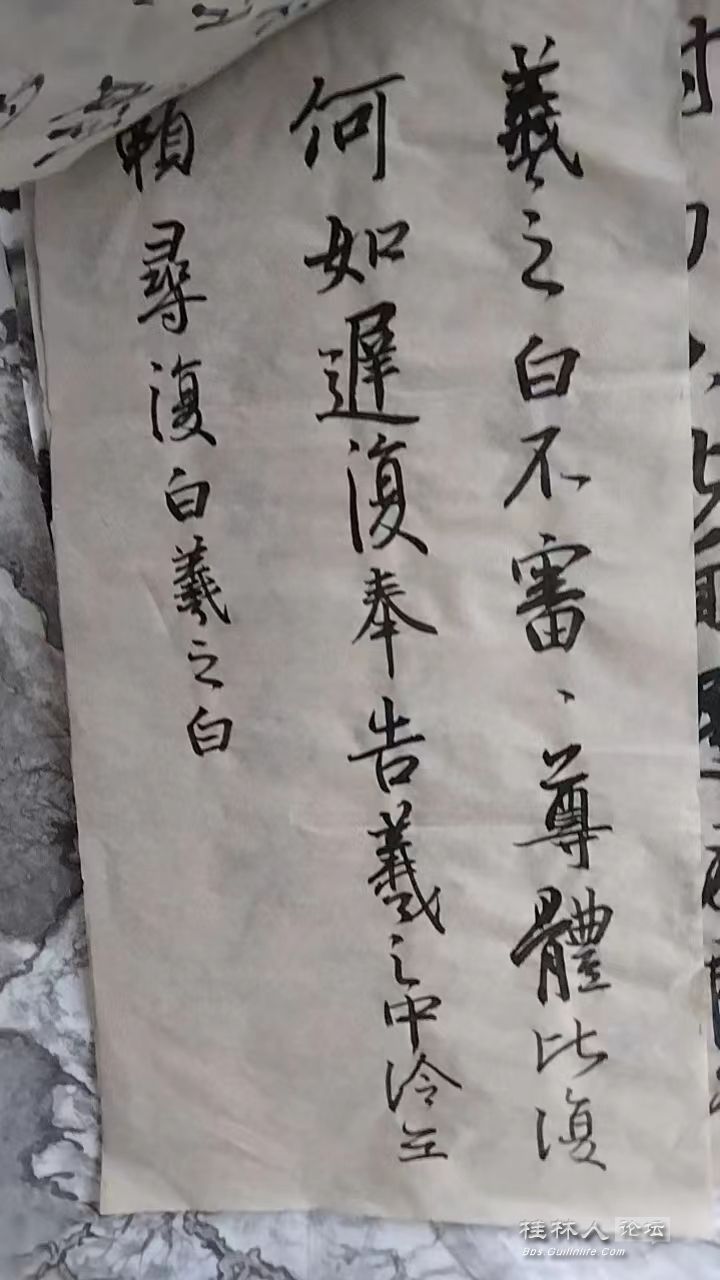 羲之白不審、尊體比復
何如遲復奉告羲之中冷㱏
頼尋復白羲之白
桂林人论坛
Bbs.Guilinlife.Com